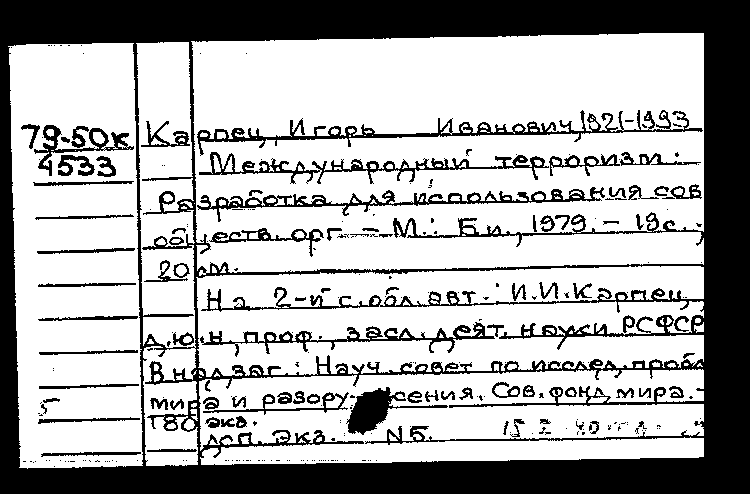 79-50к Карпец, Игорь Иванович, 1921-1993
4533 Международный терроризм:
Разработка для использования сов
обществ. орг. – М.: Б.и., 1979. – 19с.;
20 см.
На 2-й с. обл. авт.: И.И. Карпец,
д.ю.н, проф., засл. деят. науки РСФСР
В надзаг.: Науч. совет по исслед. пробл
5 мира и разоружения. Сов. фонд мира. –
Т80 экз.
Доп. экз. N5.